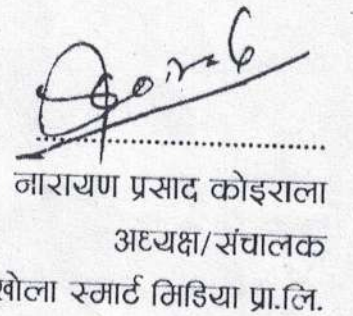 नारायण प्रसाद कोइराला
अध्यक्ष/संचालक
खोला स्मार्ट मिडिया प्रा.लि.